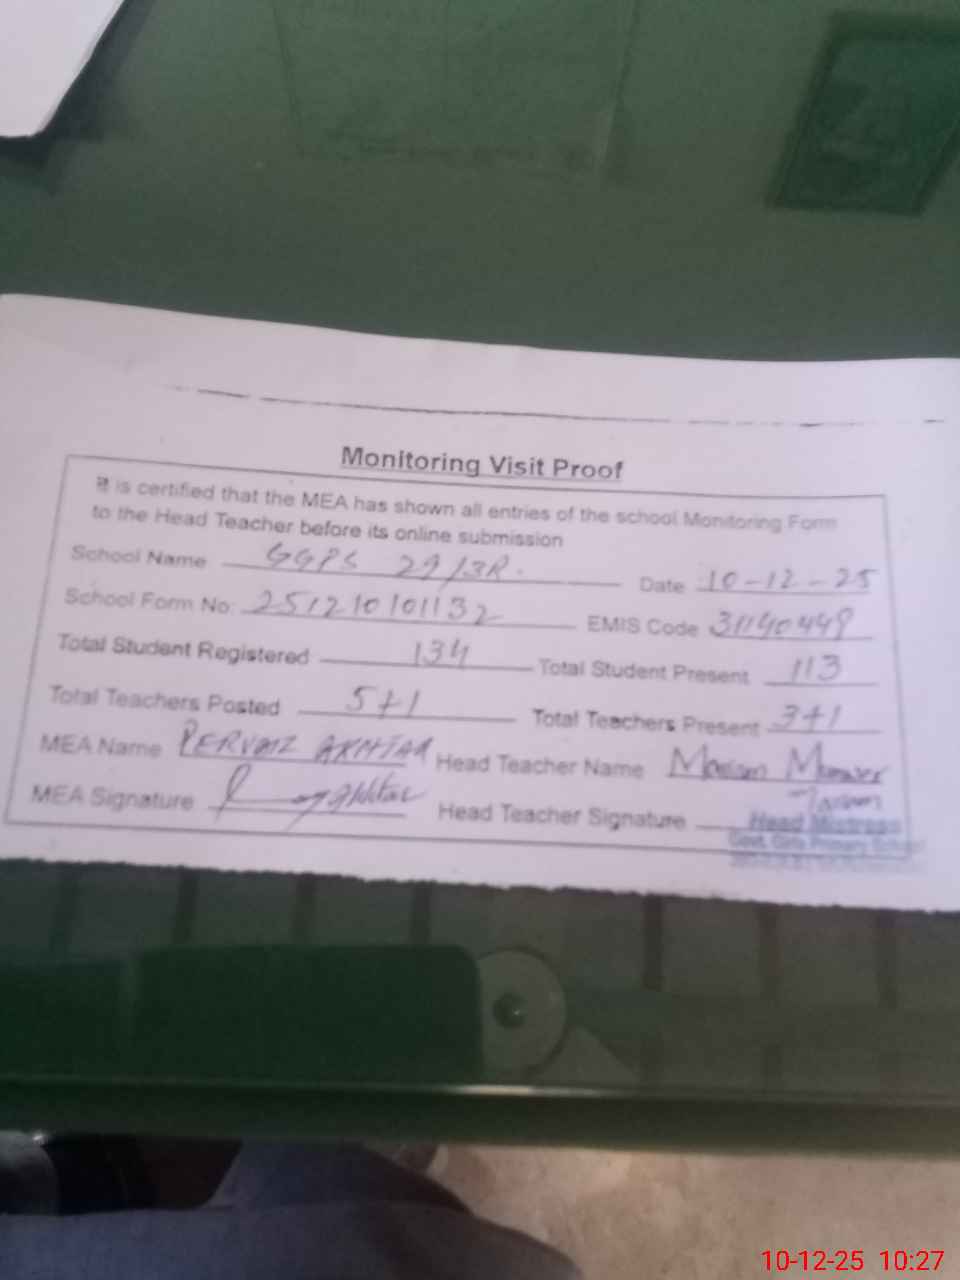 Monitoring Visit Proof
It is certified that the MEA has shown all entries of the school Monitoring Form
to the Head Teacher before its online submission
School Name GGPS 29/3R. Date 10-12-25
School Form No: 251210101132 EMIS Code 31140449
Total Student Registered 134 Total Student Present 113
Total Teachers Posted 5+1 Total Teachers Present 3+1
MEA Name PERVAIZ AKHTAR Head Teacher Name Mariam Munawer
MEA Signature Akhtar Head Teacher Signature Mariam
Head Mistress
Govt. Girls Primary School
10-12-25 10:27